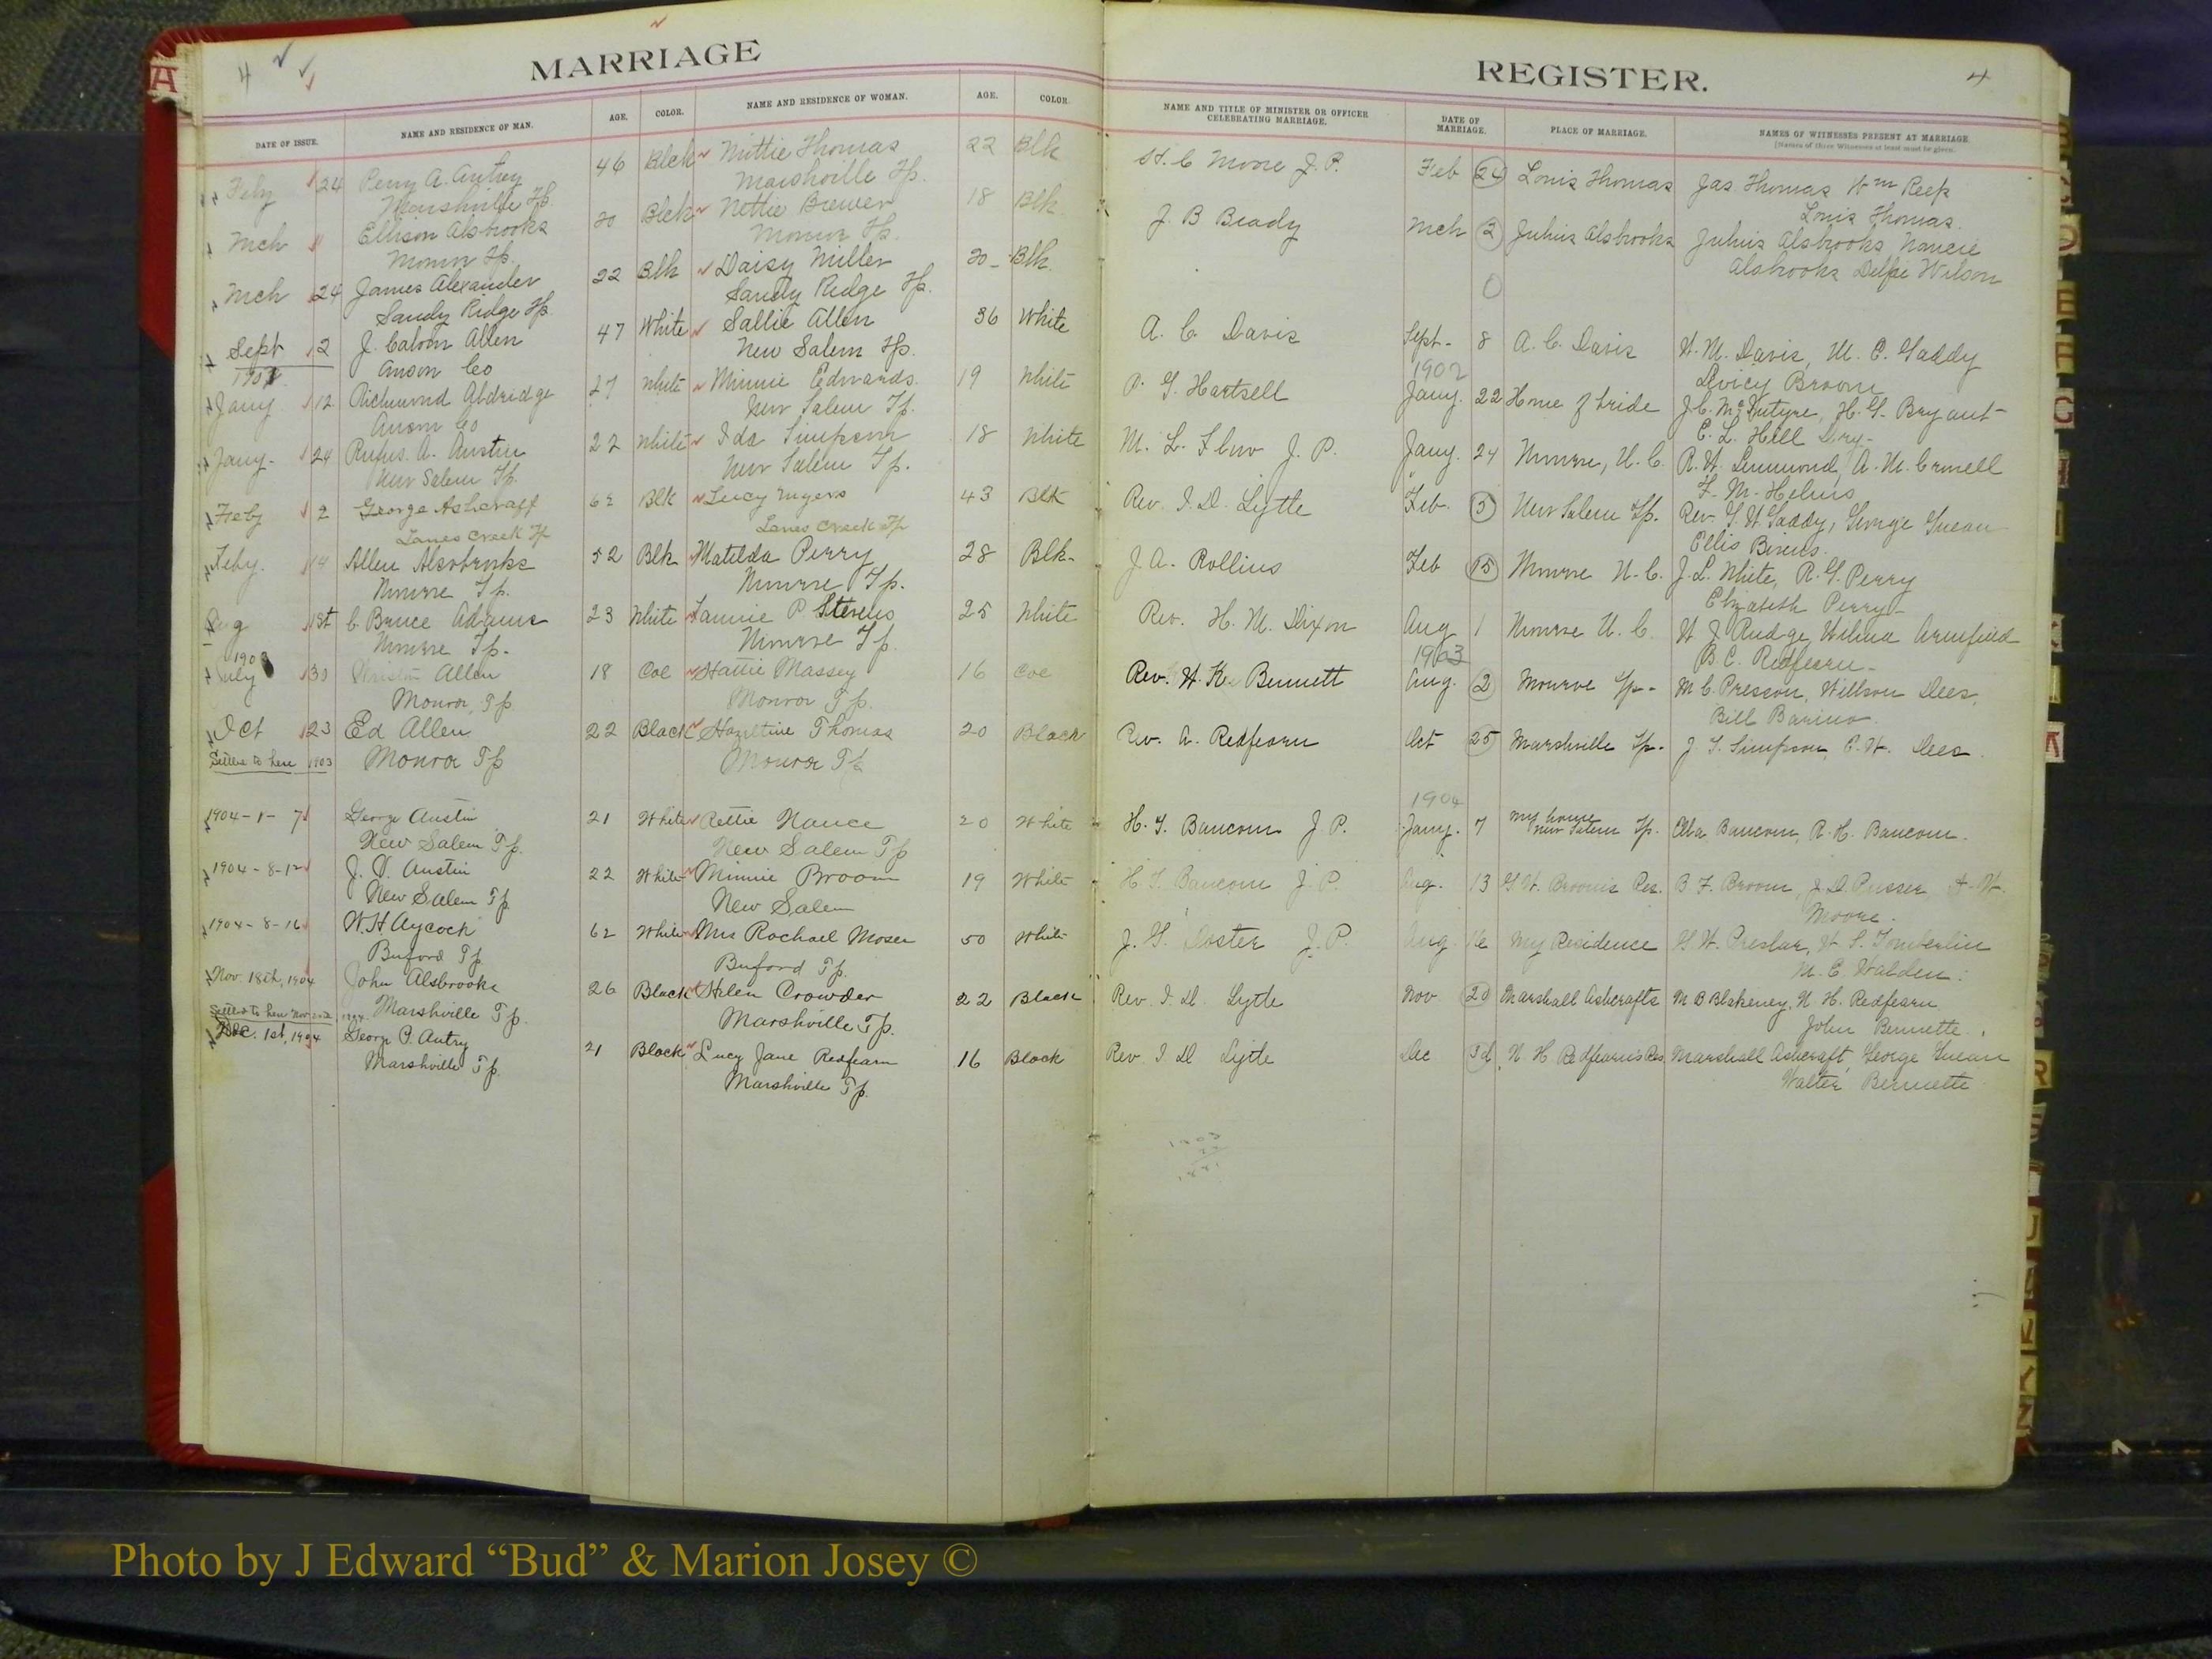 4
MARRIAGE
DATE OF ISSUE. NAME AND RESIDENCE OF MAN. AGE. COLOR. NAME AND RESIDENCE OF WOMAN. AGE. COLOR.
Feby 24 Perry A. Autrey 46 Blck Mittie Thomas 22 Blk
Marshville Tp. Marshville Tp.
Mch Ellison Alsbrooks 20 Blck Nettie Brewer 18 Blk
Monroe Tp. Monroe Tp.
Mch 24 James Alexander 22 Blk Daisy Miller 20 Blk.
Sandy Ridge Tp. Sandy Ridge Tp.
Sept 2 J. Calvin Allen 47 White Sallie Allen 36 White
Anson Co New Salem Tp.
Jany 12 Richmond Aldridge 27 White Minnie Edwards 19 White
Anson Co New Salem Tp.
Jany- 24 Rufus. A. Austin 22 White Ida Simpson 18 White
New Salem Tp. New Salem Tp.
Feby 2 George Ashcraft 62 Blk Lucy Myers 43 Blk
Lanes Creek Tp Lanes Creek Tp
Feby. 14 Allen Alsobrooks 52 Blk Matilda Perry 28 Blk-
Monroe Tp. Monroe Tp.
Aug 1st C. Bruce Adams 23 White Fannie P. Stevens 25 White
Monroe Tp. Monroe Tp.
July 30 Allen 18 Col Hattie Massey 16 Col
Monroe, Tp. Monroe Tp.
Oct 23 Ed Allen 22 Black Hazeltine Thomas 20 Black
Settled to here 1903 Monroe Tp Monroe Tp
1904-1-7 George Austin 21 White Rettie Nance 20 White
New Salem Tp. New Salem Tp
1904-8-12 J. D. Austin 22 White Minnie Broom 19 White
New Salem Tp New Salem
1904-8-16 W. H Aycock 62 White Mrs Rachael Moser 50 White
Buford Tp. Buford Tp.
Nov. 18th, 1904 John Alsbrooks 26 Black Helen Crowder 22 Black
Settled to here Nov Marshville Tp. Marshville Tp.
Dec. 1st, 1904 George P. Autry 21 Black Lucy Jane Redfearn 16 Black
Marshville Tp. Marshville Tp.
REGISTER.
4
NAME AND TITLE OF MINISTER OR OFFICER CELEBRATING MARRIAGE. DATE OF MARRIAGE. PLACE OF MARRIAGE. NAMES OF WITNESSES PRESENT AT MARRIAGE
[Names of three Witnesses at least must be given.
H. C Moore J. P. Feb 24 Louis Thomas Jas Thomas Wm Reep
Louis Thomas.
J. B Beady Mch 2 Julius Alsbrooks Julius Alsbrooks Nancie
Alsbrooks Delphie Wilson
0
A. C. Davis Sept- 8 A. C. Davis W. M. Davis, M. E. Gaddy
1902 Dvicy Broom
P. G. Hartsell Jany. 22 Home of bride J. C. McIntyre, H. G. Bryant
E. L. Hill Dry-
M. L. Flow J. P. Jany. 24 Monroe, N. C. R. W. Lemmond, A. M. Crowell
F. M. Helms
Rev. I. D. Lytle Feb. 5 New Salem Tp. Rev. G. W Gaddy, George Gwean
Ellis Bivens.
J. A. Rollins Feb 15 Monroe N. C. J. L. White, R. G. Perry
Elizabeth Perry-
Rev. H. M. Dixon Aug 1 Monroe N. C. W J Rudge, Wilma Armfield
1903 B. C. Redfearn-
Rev. W. K. Bennett Aug. 2 Monroe Tp- M C. Presson, Willson Dees,
Bill Barino
Rev. A. Redfearn Oct 25 Marshville Tp- J. S. Simpson, P. W. Dees
1904
H. T. Baucom J. P. Jany. 7 my house New Salem Tp. Elba Baucom, R. H. Baucom.
H T. Baucom J. P. Aug. 13 G. W. Broom's Res. B. F. Broom, J. D. Pusser
Moore.
J. G. Doster J. P. Aug. 16 My Residence G W. Preslar, W. S. Tomberlin
M. E. Walden
Rev. I. D. Lytle Nov 20 Marshall Ashcrafts M B Blakeney, N. H. Redfearn
John Bennette.
Rev. I D Lytle Dec 3d N. H Redfearn's Res. Marshall Ashcraft, George Gwean
Walter Bennette
Photo by J Edward “Bud” & Marion Josey ©